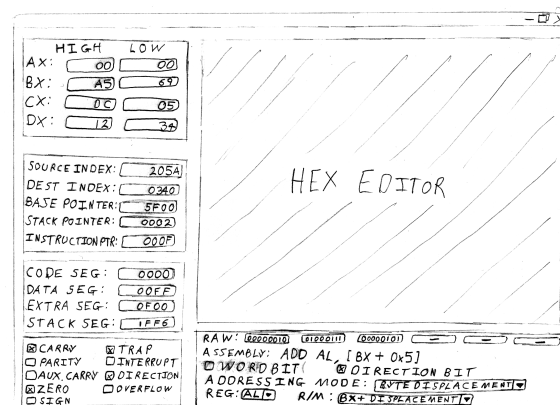 HIGH LOW
AX: 00 00
BX: A5 69
CX: 0C 05
DX: 12 34
SOURCE INDEX: 205A
DEST INDEX: 0340
BASE POINTER: 5F00
STACK POINTER: 0002
INSTRUCTION PTR: 000F
CODE SEG: 0000
DATA SEG: 00FF
EXTRA SEG: 0F00
STACK SEG: 1FF6
CARRY TRAP
PARITY INTERRUPT
AUX. CARRY DIRECTION
ZERO OVERFLOW
SIGN
HEX EDITOR
RAW: 00000010 01000111 00000101 — — —
ASSEMBLY: ADD AL, [BX + 0x5]
WORD BIT DIRECTION BIT
ADDRESSING MODE: BYTE DISPLACEMENT
REG: AL R/M: BX+ DISPLACEMENT